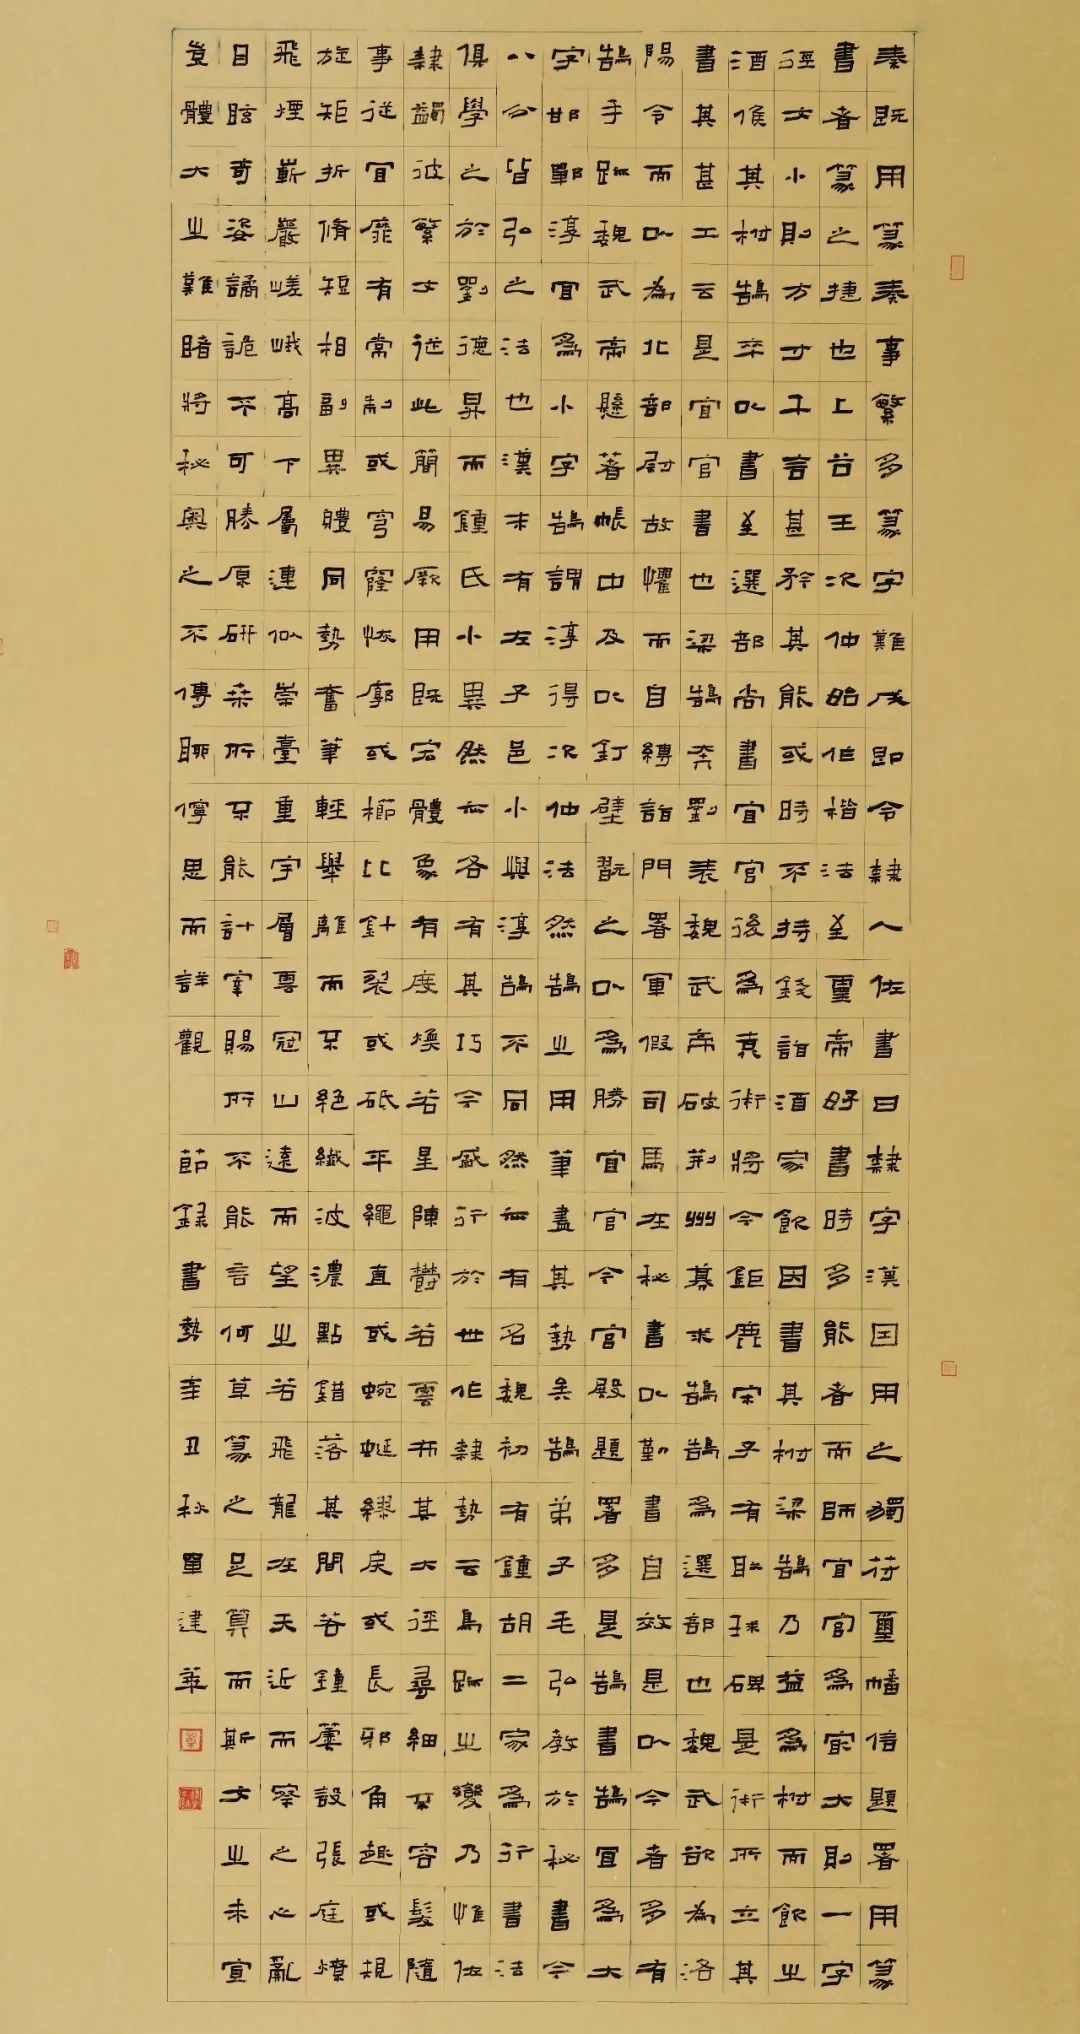 秦既用篆奏事繁多篆字難成即令隸人佐書曰隸字漢因用之獨符璽幡信題署用篆
書者篆之捷也上谷王次仲始作楷法至靈帝好書時多能者而師宜官為最大則一字
徑丈小則方寸千言甚矜其能或時不持錢詣酒家飲因書其柎梁鵠乃益為柎而飲之
酒候其柎鵠卒以書至選部尚書宜官後為袁術將今鉅鹿宋子有耿球碑是術所立其
書其甚工云是宜官書也梁鵠奔劉表魏武帝破荊州募求鵠鵠為選部也魏武欲為洛
陽令而以為北部尉故懼而自縛詣門署軍假司馬在秘書以勤書自效是以今者多有
鵠手跡魏武帝懸著帳中及以釘壁翫之以為勝宜官今宮殿題署多是鵠書鵠宜為大
字邯鄲淳宜為小字鵠謂淳得次仲法然鵠之用筆盡其勢矣鵠弟子毛弘教於秘書今
八分皆弘之法也漢末有左子邑小與淳鵠不同然亦有名魏初有鍾胡二家為行書法
俱學之於劉德昇而鍾氏小異然亦各有其巧今盛行於世作隸勢云鳥跡之變乃惟佐
隸蠲彼繁文從此簡易厥用既宏體象有度煥若星陳鬱若雲布其大徑尋細不容髮隨
事從宜靡有常制或穹窿恢廓或櫛比針裂或砥平繩直或蜿蜒繆戾或長邪角趣或規
旋矩折脩短相副異體同勢奮筆輕舉離而不絕纖波濃點錯落其間若鍾簴設張庭燎
飛煙嶄巖嵯峨高下屬連似崇臺重宇層雲冠山遠而望之若飛龍在天近而察之心亂
目眩奇姿譎詭不可勝原研桑所不能計宰賜所不能言何草篆之足算而斯文之未宣
豈體大之難睹將秘奧之不傳聊儜思而詳觀 節錄書勢辛丑秋單建華